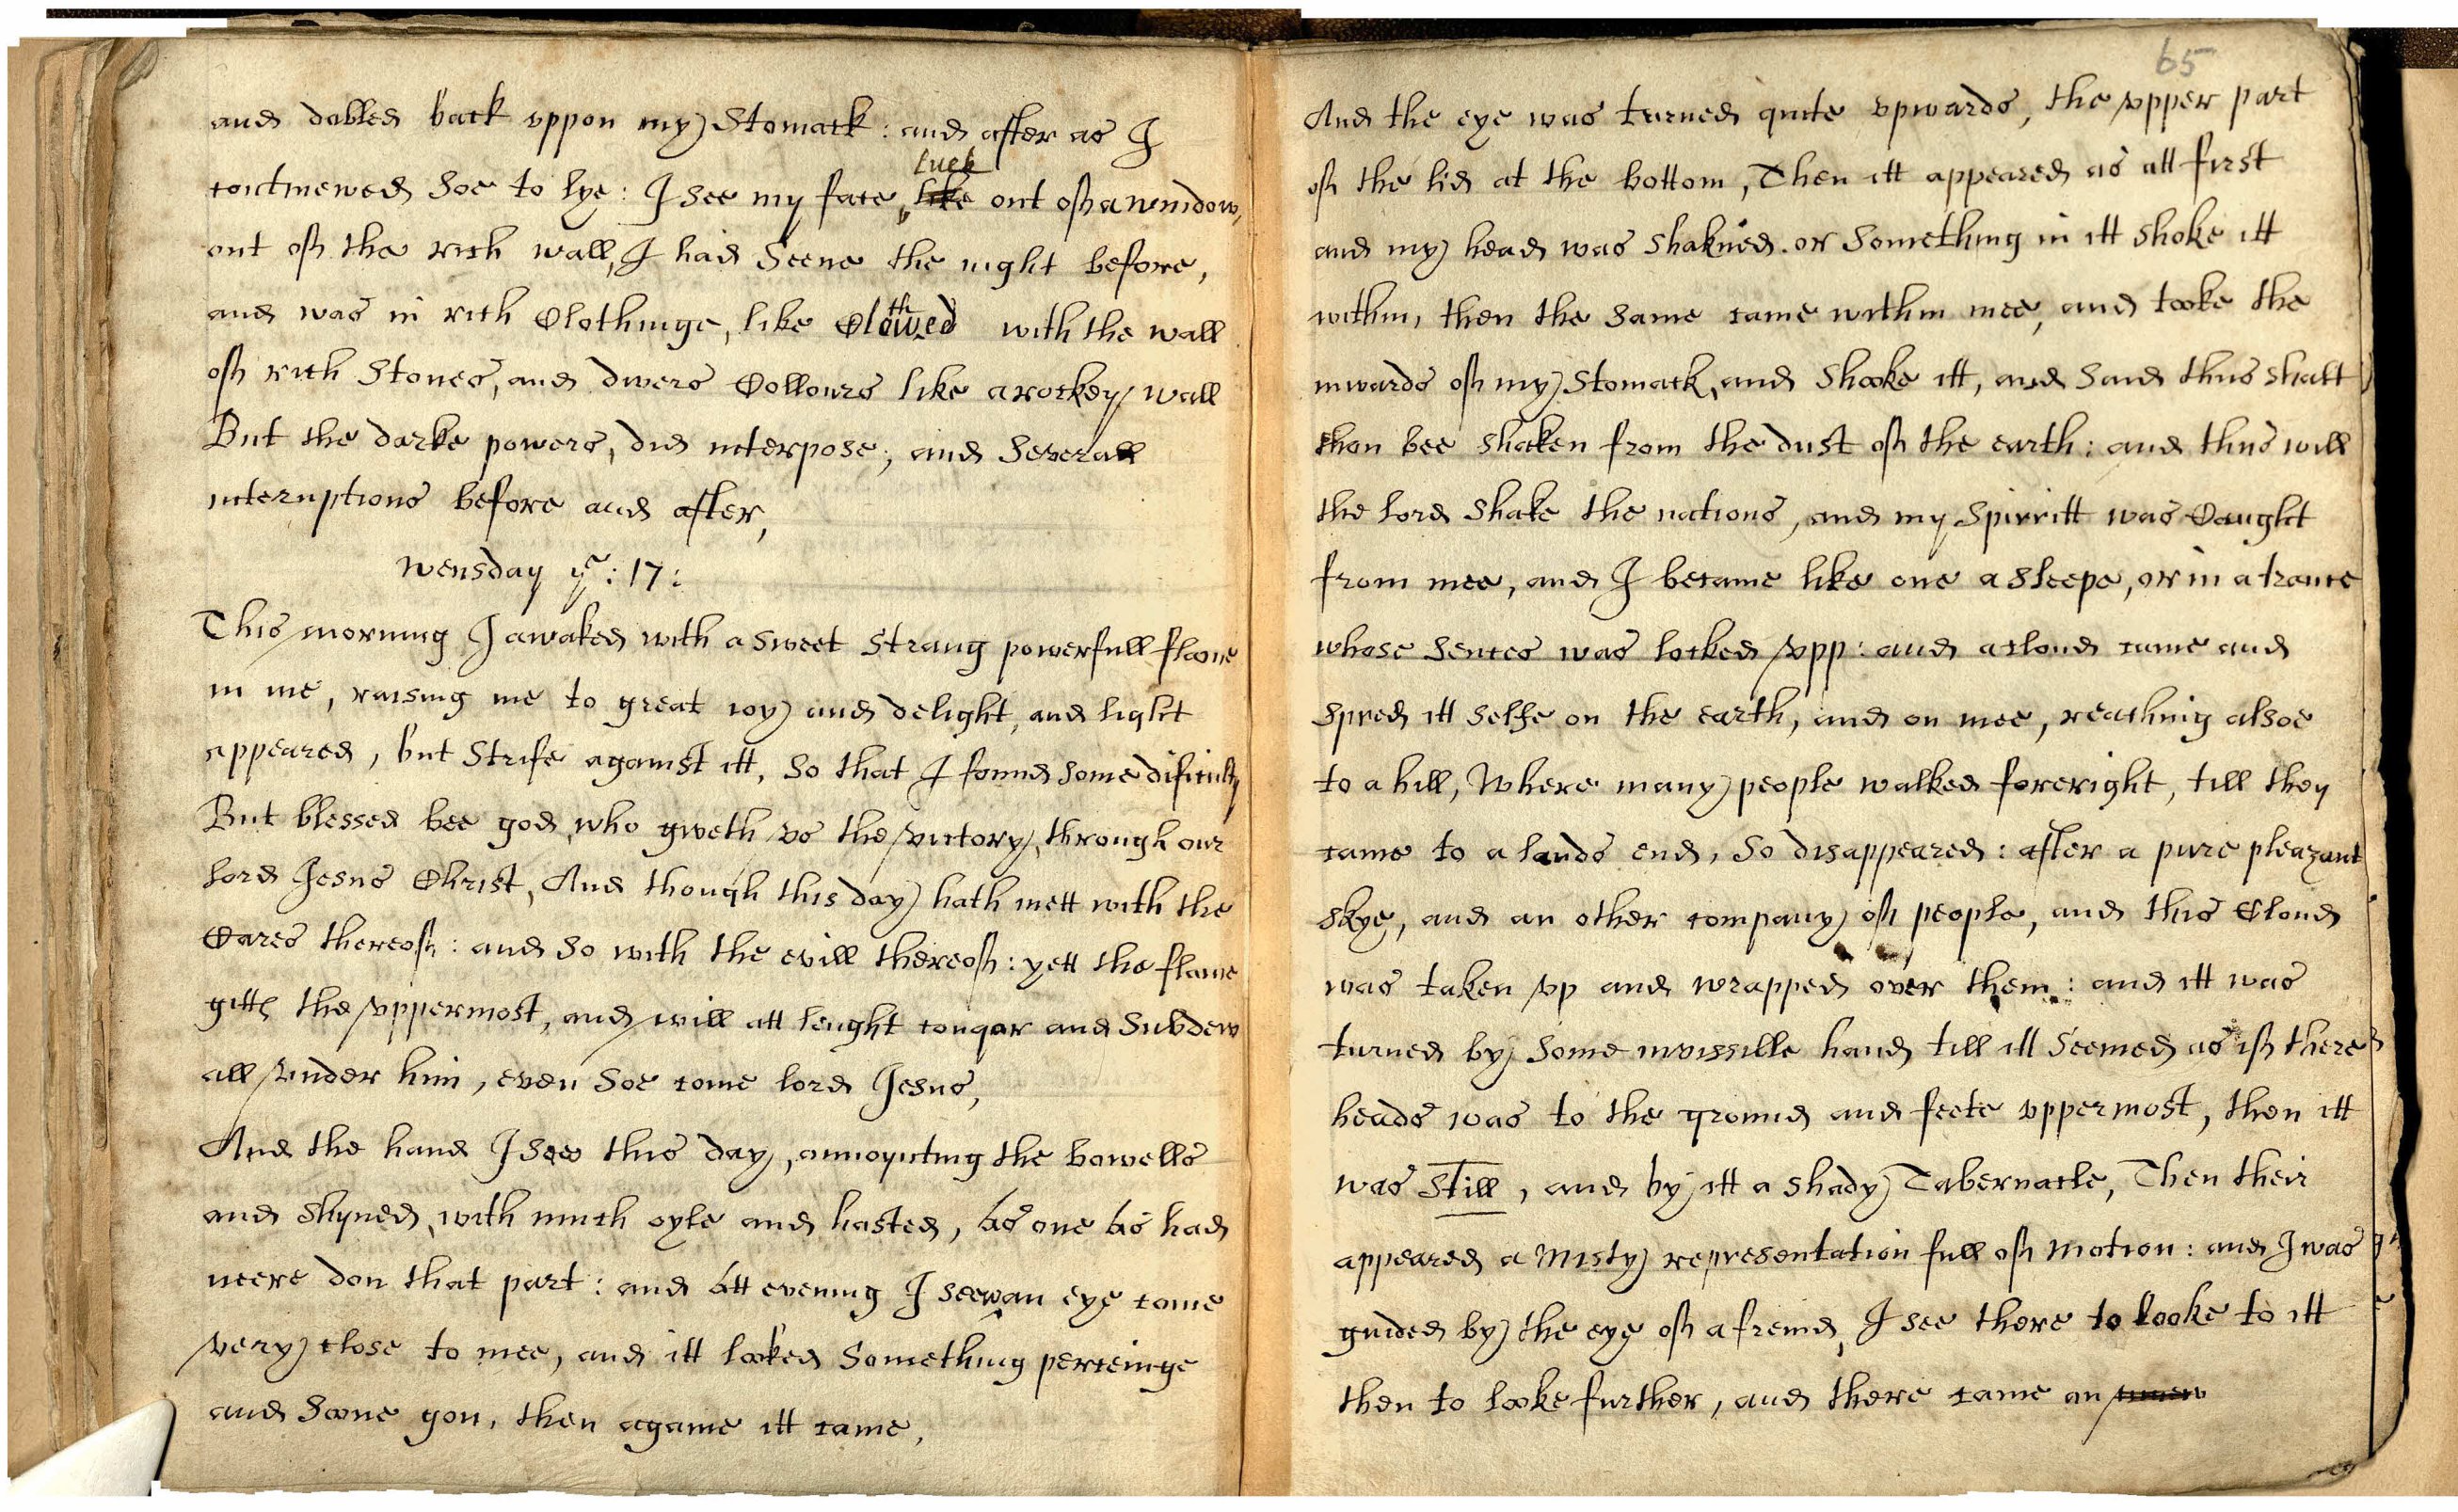 and dobled back vppon my Stomack: and after as I
continewed Soe to lye: I see my face, luck like out off a window,
out off the rich wall, I had Seene the night before,
and was in rich Clothinge, like Clothed with the wall
off rich Stones, and divers Collours like a rockey wall
But the darke powers, did interpose, and Severall
interuptions before and after,
Wensday ye: 17:
This morning I awaked with a sweet Strang powerfull flame
in me, raising me to great ioy and delight, and light
appeared, but Strife against itt, So that I found some dificulty
But blessed bee god, who giveth vs the victory, through our
Lord Jesus Christ, And though this day hath mett with the
Cares thereoff: and So with the evill thereoff: yett the flame
gitts the vppermost, and will att lenght conqar and Subdew
all vnder him, even Soe come lord Jesus,
And the hand I See this day, annoyicting the bowells
and Shyned, with much oyle and hasted, as one as had
neere don that part: and att evening I see an eye come
very close to mee, and itt looked Something perceinge
and Soone gon, then againe itt came,
65
And the eye was turned quite vpwards, the vpper part
off the lid at the bottom, Then itt appeared as att first
and my head was Shakned. or Something in itt Shoke itt
within, then the Same came within mee, and tooke the
inwards off my Stomack, and Shooke itt, and Said thus shalt
thou bee shaken from the dust off the earth: and thus will
the lord Shake the nations, and my Spirritt was Caught
from mee, and I became like one a Sleepe, or in a trance
whose Sences was locked vpp: and a cloud came and
Spred itt Selfe on the earth, and on mee, reaching alsoe
to a hill, Where many people walked foreright, till they
came to a lands end, So disappeared: after a pure pleazant
Skye, and an other company off people, and this Cloud
was taken vp and wrapped over them: and itt was
turned by Some invissille hand till itt Seemed as iff there
heads was to the ground and feete vppermost, then itt
was Still, and by itt a Shady Tabernacle, Then their
appeared a Misty representation full off Motion: and I was
guided by the eye off a freind, I see there to looke to itt
then to looke further, and there came an